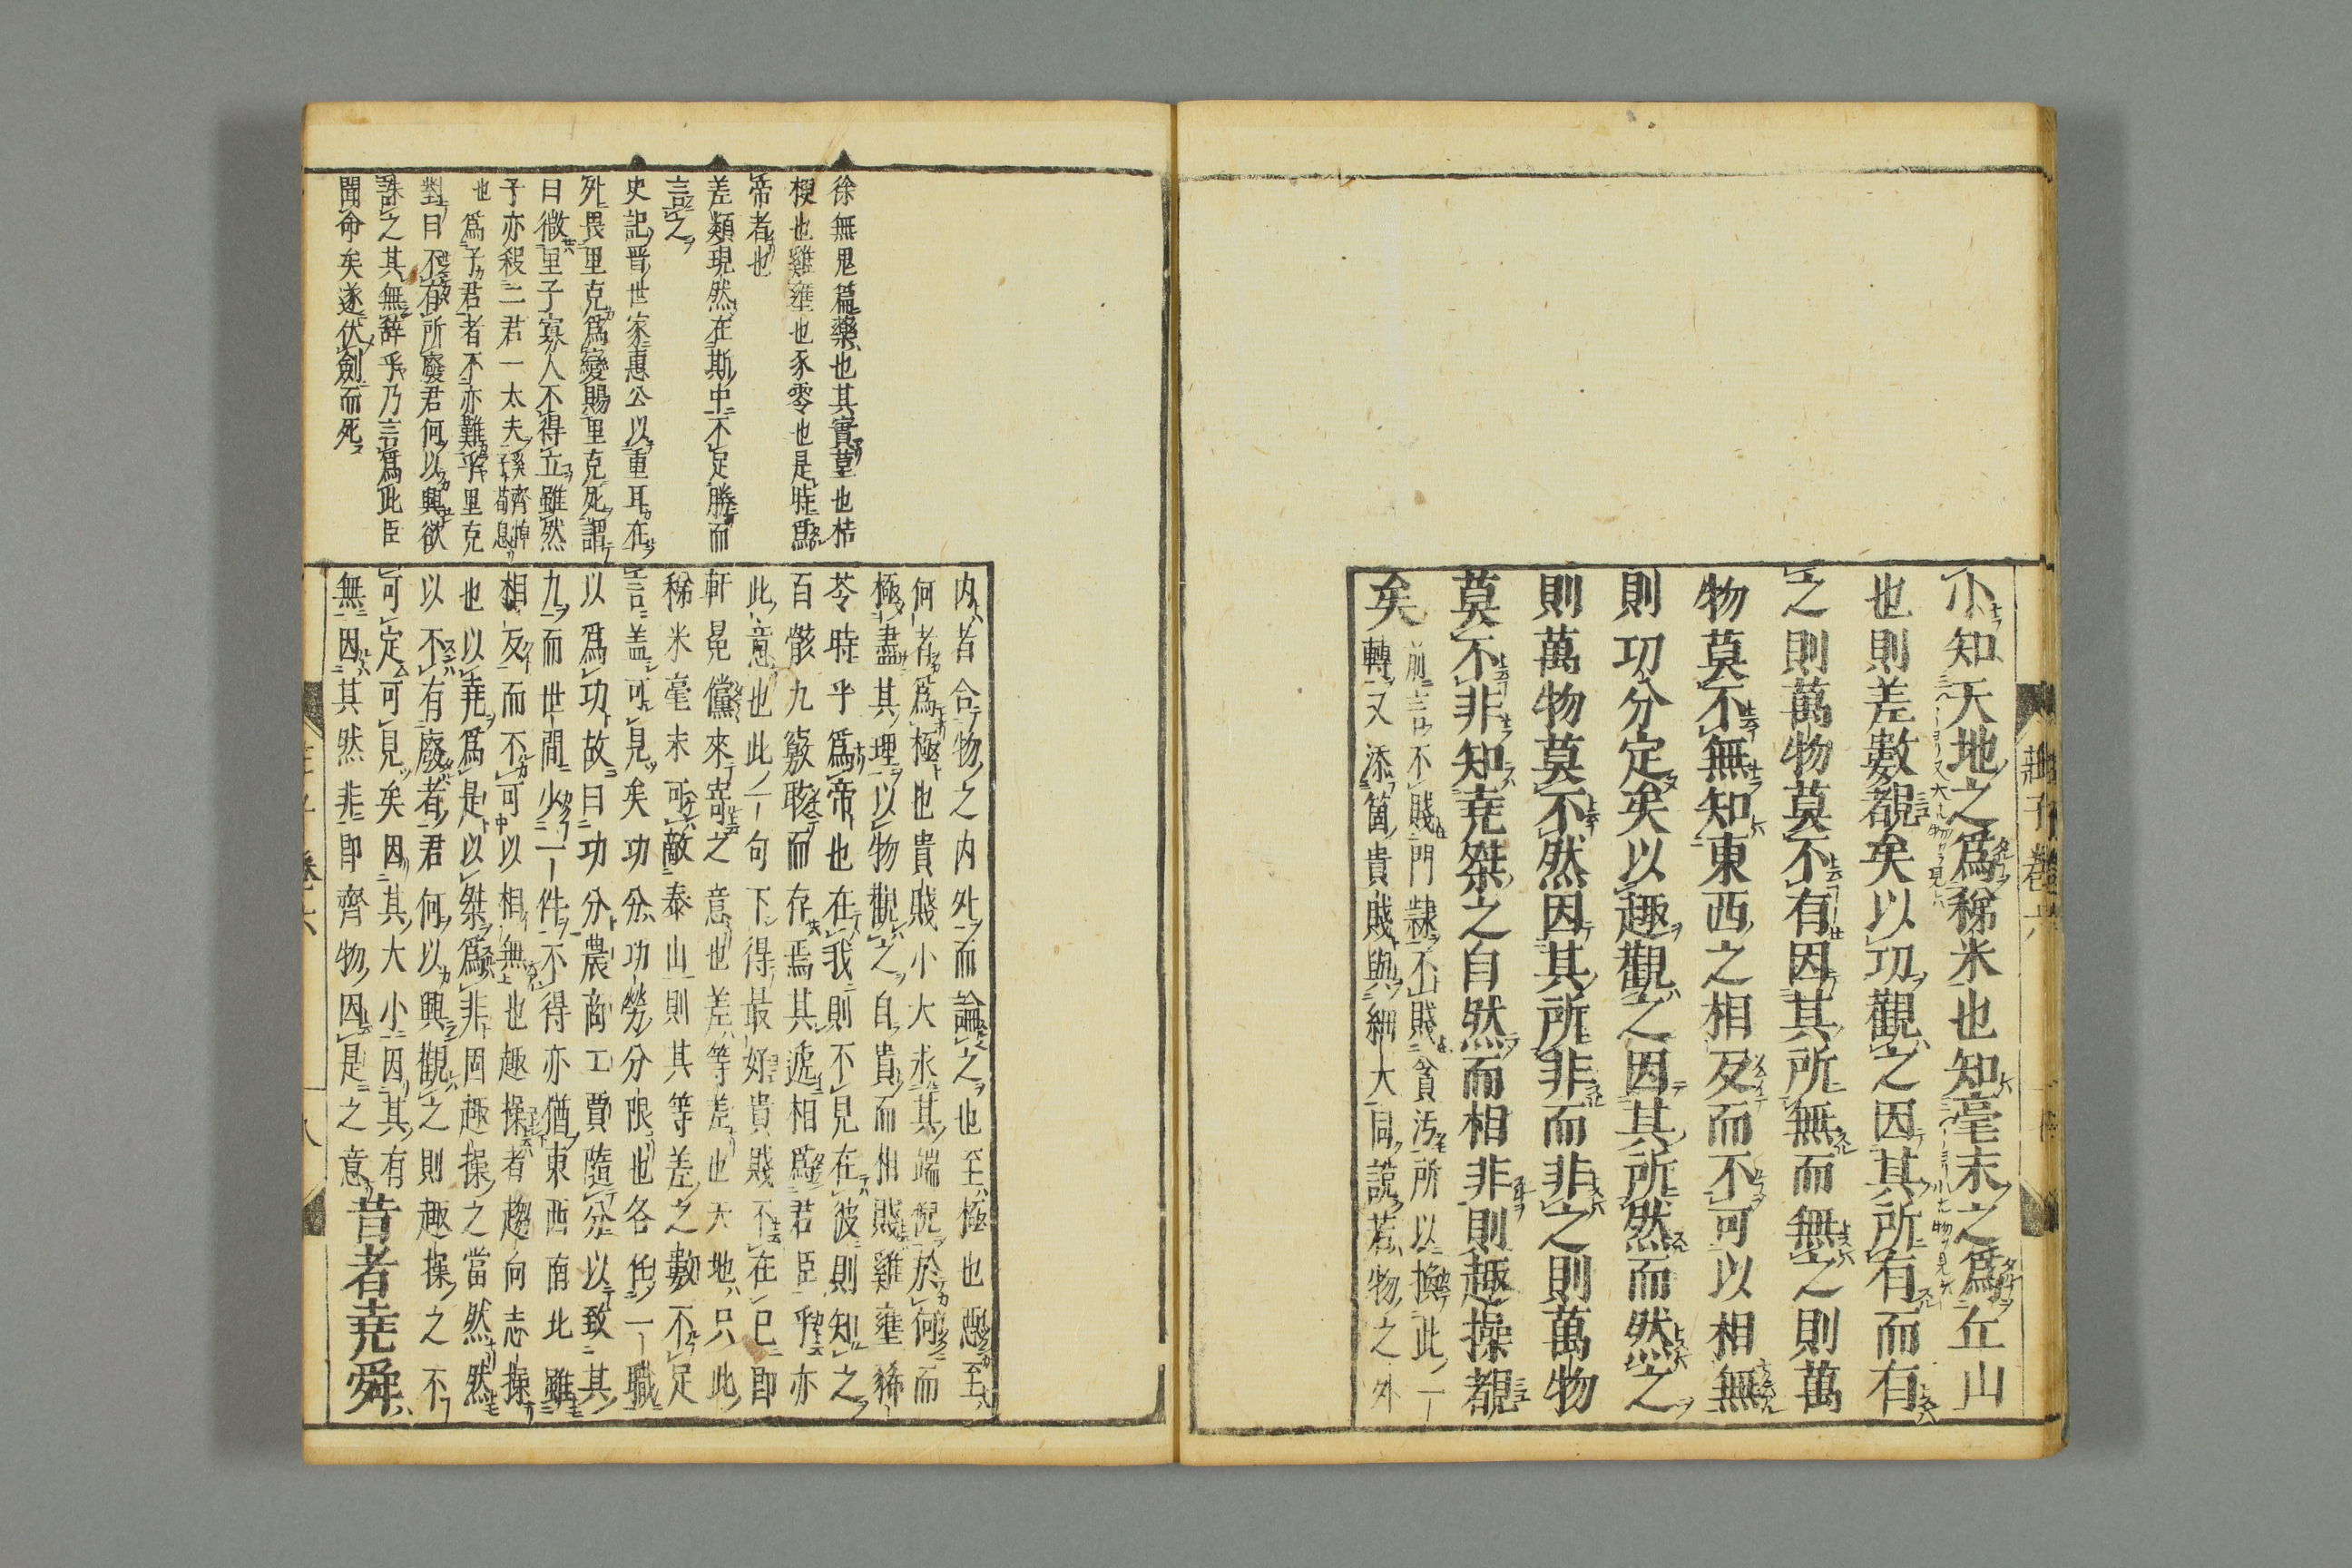 小知天地之爲稊米也知毫末之爲丘山
也則差數覩矣以功觀之因其所有而有
之則萬物莫不有因其所無而無之則萬
物莫不無知東西之相反而不可以相無
則功分定矣以趣觀之因其所然而然之
則萬物莫不然因其所非而非之則萬物
莫不非知堯桀之自然而相非則趣操覩
矣
前言不賤門隷不賤貪汚所以換此一
轉又添箇貴賤與細大同說若物之外
莊子
徐無鬼篇藥也其實菫也桔
梗也雞壅也豕零也是時爲
帝者也
差類現然在斯中不足勝而
言之
史記晋世家惠公以重耳在
外畏里克爲變賜里克死謂
曰微里子寡人不得立雖然
子亦殺二君一太夫奚齊悼子荀息
也爲子君者不亦難乎里克
對曰不有所廢君何以興欲
誅之其無辭乎乃言爲此臣
聞命矣遂伏劍而死
内者合物之内外而論之也至極也惡至
何者爲極也貴賤小大求其端倪於何而
極盡其理以物觀之自貴而相賤雞壅豨
苓時乎爲帝也在我則不見在彼則知之
百骸九竅賅而存焉其遞相爲君臣乎亦
此意也此一句下得最好貴賤不在已即
軒冕儻來寄之意也差等差也天地只此
稊米毫末可敵泰山則其等差之數不足
言盖可見矣功分功勞分限也各任一職
以爲功故曰功分農商工賈隨分以致其
九而世間少一件不得亦猶東西南北雖
相反而不可以相無也趣操者趨向志操
也以堯爲是以桀爲非固趣操之當然然
以不有廢者君何以興觀之則趣操之不
可定可見矣因其大小因其有
無因其然非即齊物因是之意昔者堯舜